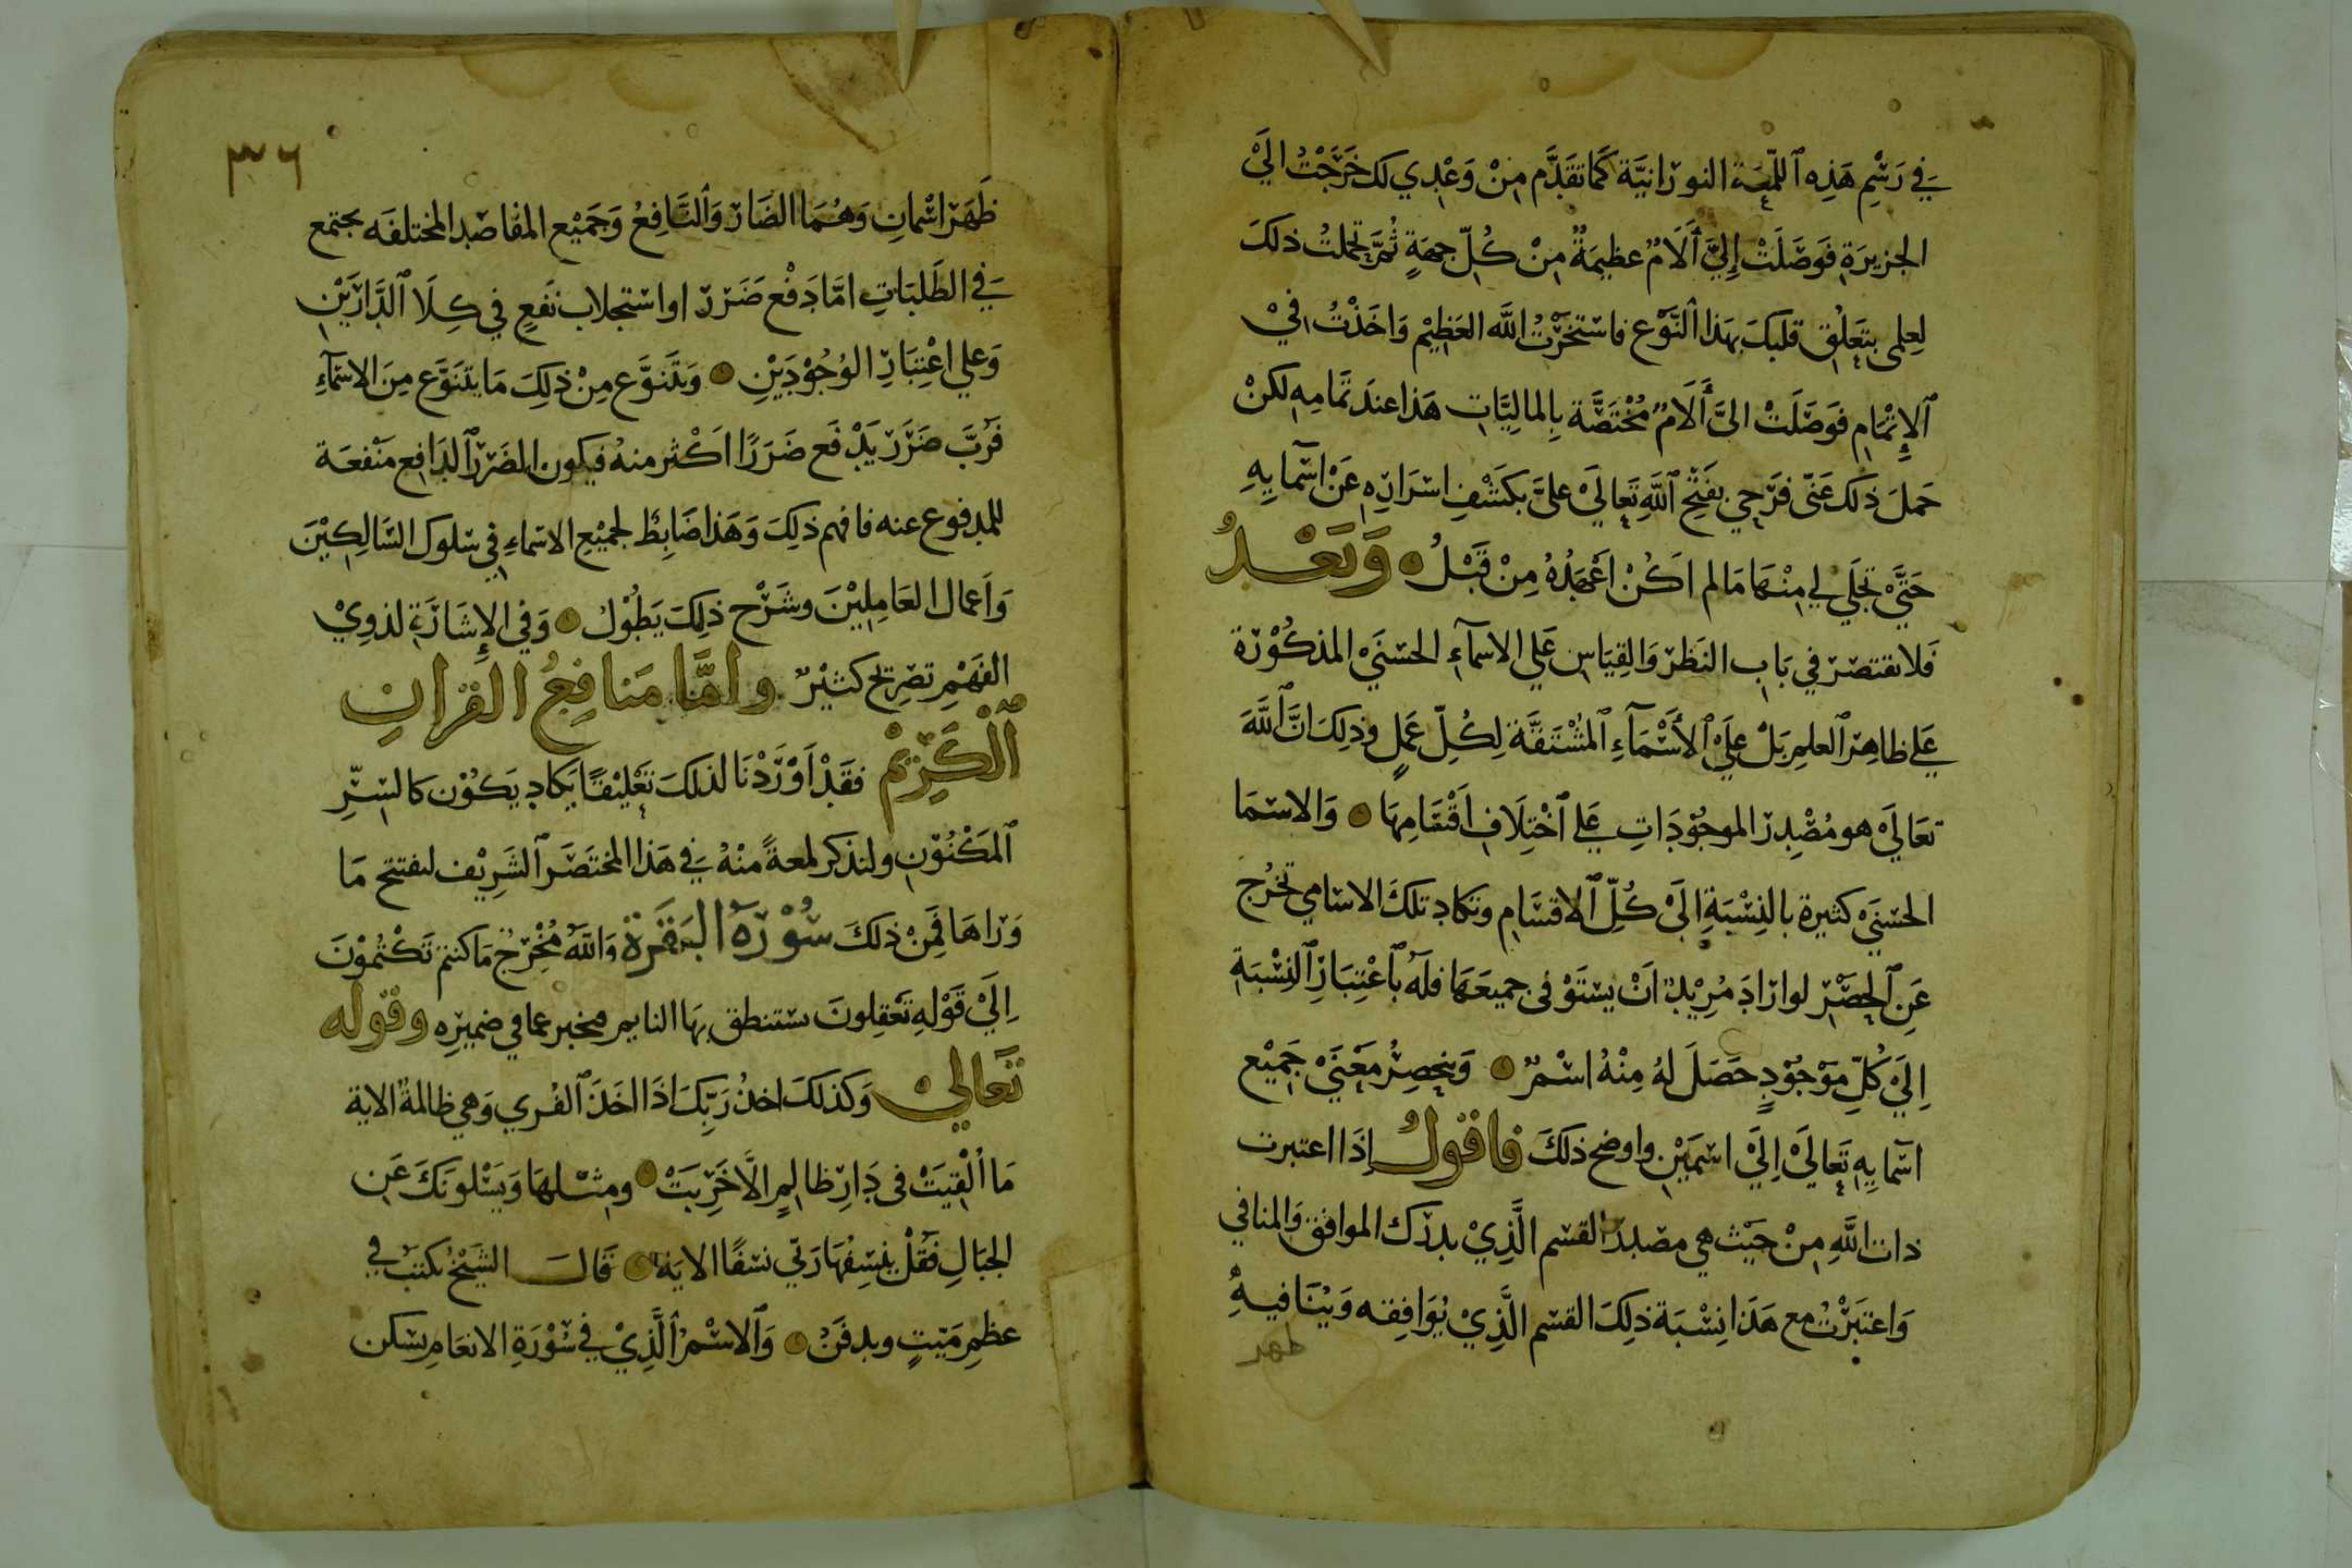 في رَسْمِ هَذِه ٱللّمعَة النورانيَّة كَما تقَدَّم مِنْ وَعْدِي لك خَرَجْتُ اليَ
الجزيرَةِ فَوَصَلَتْ إِليَّ ٱَلَامٌ عظيمَةٌ مِنْ كُلّ جهَةٍ ثُمَّ تحملتُ ذلكَ
لعِلمي بتَعَلُّقِ قلبكَ بهَذا ٱلنَّوْع فاستخَرْتُ اللَّه العَظِيْم وَاخَذْتُ فيْ
ٱلإِتْمَامِ فوَصَلَتْ اليَّ ٱَلَامٌ مُخْتَصَّة بِالماليَّاتِ هَذا عندَ تمَامِهِ لكنْ
حَملَ ذلَك عَنّى فرَحِي بفَتْحِ ٱللَّهِ تَعالَيْ عليَّ بكَشْفِ اسْرَارِهِ عَنْ اسْمآيِهِ
حَتَّيْ تجلَي لي مِنْهَا مَا لم اَكُنْ اَعْهَدُهُ مِنْ قَبْلُ وَبَعْدُ
فَلا تقتصرْ في بَابِ النَظرِ وَالقِيَاسِ عَلي الاسمآءِ الحسْنَيْ المذكُوْرَة
عَلي ظاهِرْ ٱلعلمِ بَلْ عليْ ٱلأَسْمَآءِ ٱلمُشْتَقَّة لِكُلّ عَمَلٍ وذلِكَ انَّ ٱللَّهَ
تعَالَيْ هو مُصْدِرْ الموجُوْدَاتِ عَلي ٱخْتِلَافِ اَقْسَامِهَا وَالاسْمَا
الحسْنَيْ كثيرة بالنِسْبَةِ اِلَيْ كُلّ ٱلاقسَامِ وتكاد تلكَ الاسَامي تخرُج
عَنِ ٱلحصْرِ لوارَادَ مُرِيْدٌ اَنْ يسْتَوْفى جميعَهَا فلَهُ بٱعْتِبَارِ ٱلنِسْبَةِ
اِلَيْ كُلِّ مَوْجُوْدٍ حَصَلَ لهُ مِنْهُ اسْمٌ وَينحصِرُ مَعْنَيْ جَمِيْع
اسْمآيِهِ تَعالَيْ اِلَيْ اسْمَيْنِ واوضح ذلكَ فاقولُ إِذَا اعتبرت
ذات اللَّهِ مِنْ حَيْث هي مصْدرْ القسْم الَّذِيْ يدرَك الموافقِ وَالمنافي
وَاعتبَرْتُ مع هَذَا نِسْبَة ذلِكَ القسْم الَّذِيْ يُوَافِقِه وَيُنَافيهُ
ظهر
٣٦
ظَهَرَ اسْمانِ وَهُمَا الضَارْ وَٱلنَّافِعُ وَجَمِيْع المقاصْد المختلفَه يجتمع
في الطَلَبَاتِ امَّا دَفْع ضَرَرْ او اسْتجلاب نَفعٍ في كِلَا ٱلدَّارَيْنِ
وَعلي اعْتِبَارِ الوُجُوْدَيْنِ وَيتَنوَّع مِنْ ذلِكَ مَا يتَنَوَّع مِنَ الاسْمآءِ
فَرُبَّ ضَرَرْ يَدْفَع ضَرَرًا اَكْثر منهُ فيكون الضَرَرْ ٱلدَافِع مَنْفعَة
للمدفوع عنه فافهم ذلِكَ وَهَذا ضَابِطٌ لجميْعِ الاسْماءِ في سْلوك السَّالِكِيْنَ
وَاَعمال العَامِلِيْنَ وشَرْح ذلِكَ يَطُوْلُ وَفي الإِشَارَةِ لذوِيْ
الفَهْمِ تصْرِيحٌ كثيْرٌ وامَّا مَنافِعُ القرْانِ
ٱلْكَرِيْمْ فقَدْ اَوْرَدْنَا لذلكَ تَعْلِيْقًا يَكاد يَكُوْن كالسِّرِّ
ٱلمَكْنُوْنِ ولنذكر لمعةً منْهُ في هَذا المختَصَر ٱلشَرِيْف لنفتتح مَا
وَرَاهَا فَمِنْ ذلكَ سُوْرَة البَقَرَة وَاللّهُ مُخْرِجٌ مَا كنتم تَكْتُمُوْنَ
اِلَيْ قَوْلِهِ تَعْقِلونَ ستنطق بِهَا النايم مخبر عما في ضميرِه وقوله
تَعَالي وَكذلكَ اخذُ رَبّكَ اذَا اخَذَ ٱلقُري وَهي ظالمةٌ الاية
مَا اُلْقِيَتْ فى دَارِ ظالِمٍ الَّا خَرِبَتْ ومثلهَا وَيَسْلونَكَ عَن
الجبَالِ فقُلْ يَنسِفُهَا رَبّي نسْفًا الايَة قَالَ الشَيْخُ يكتب في
عظمِ مَيّتٍ ويدفَنْ وَٱلاسْمُ ٱلَّذِيْ في سُوْرَةِ الانعَامِ يسكن